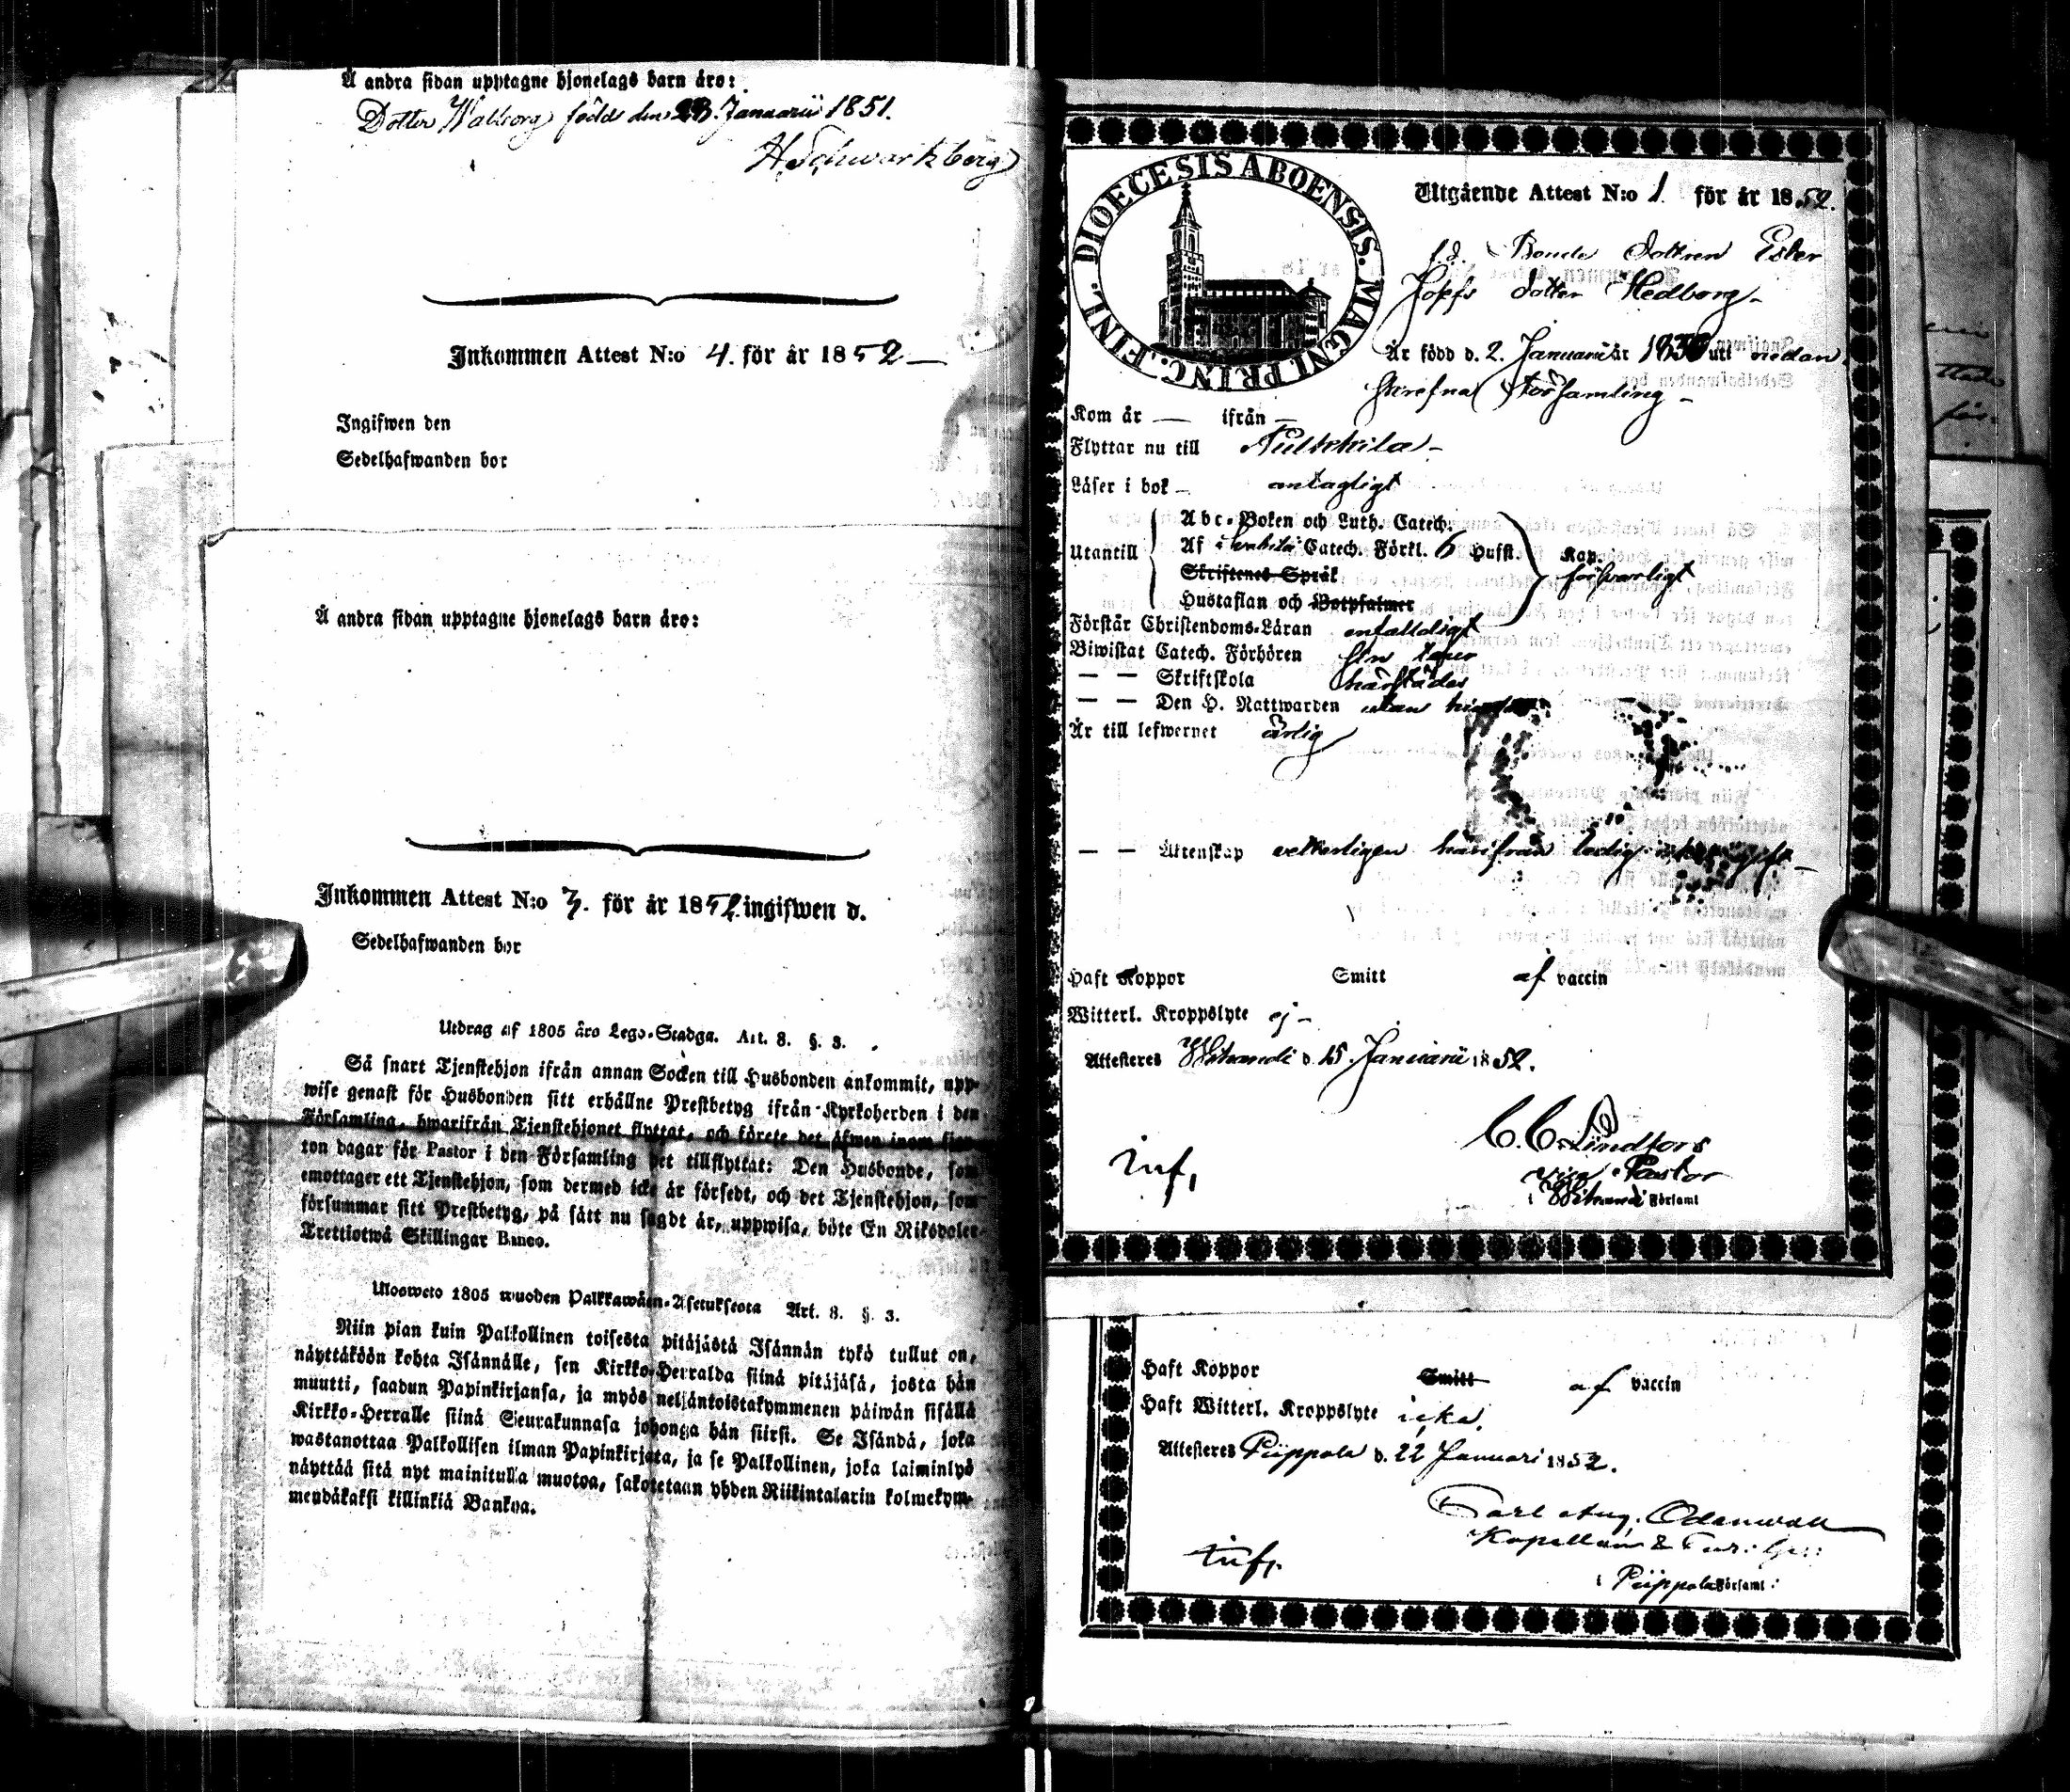 Å andra sidan upptagne hjonelags barn äro:
Dotter Walborg född den 23. Januarii 1851.
H. Schwartzberg
Inkommen Attest N:o 4. för år 1852
Ingifwen den
Sedelhafwanden bor
Å andra sidan upptagne hjonelags barn äro:
Inkommen Attest N:o 3. för år 1852 ingifwen d.
Sedelhafwanden bor
Utdrag af 1805 års Lego-Stadga. Art. 8. §. 3.
Så snart Tjenstehjon ifrån annan Socken till Husbonden ankommit, upp-
wise genast för Husbonden sitt erhållne Prestbetyg ifrån Kyrkoherden i den
Församling, hwarifrån Tjenstehjonet flyttat, och förete det äfwen inom fjor-
ton dagar för Pastor i den Församling det tillflyttat: Den Husbonde, som
emottager ett Tjenstehjon, som dermed icke är försedt, och det Tjenstehjon, som
försummar sitt Prestbetyg, på sätt nu sagdt är, uppwisa, böte En Riksdaler
Trettiotwå Skillingar Banco.
Ulosweto 1805 wuoden Palkkawäen-Asetuksesta Art. 8. §. 3.
Niin pian kuin Palkollinen toisesta pitäjästä Isännän tykö tullut on,
näyttäköön kohta Isännälle, sen Kirkko-Herralda siinä pitäjäsä, josta hän
muutti, saadun Papinkirjansa, ja myös neljäntoistakymmenen päiwän sisällä
Kirkko-Herralle siinä Seurakunnasa johonga hän siirsi. Se Isändä, joka
wastanottaa Palkollisen ilman Papinkirjata, ja se Palkollinen, joka laiminlyö
näyttää sitä nyt mainitulla muotoa, sakotetaan yhden Riikintalarin kolmekym-
mendäkaksi killinkiä Bankoa.
DIOECESIS ABOENSIS. MAGNI PRINC. FINL.
Utgående Attest N:o 1. för år 1852.
f.d. Bonde dottren Ester
Josefs dotter Hedborg
Är född d. 2. Januarii år 1830 uti nedan
skrefna Församling
Kom år — ifrån —
Flyttar nu till Pulkkila
Läser i bok — antagligt
Utantill
Abc-Boken och Luth. Catech.
Af Catech. Förkl. 6 Hufst. Kap.
Skriftenes Språk
försvarligt
Hustaflan och Botpsalmer
Förstår Christendoms-Läran enfaldigt
Biwistat Catech. Förhören
— — Skriftskola härstädes
— — Den H. Nattwarden utan
Är till lefwernet ärlig
— — Äktenskap vetterligen härifrån ledig
Haft Koppor Smitt af vaccin
Witterl. Kroppslyte ej
Attesteres d. 15. Januarii 1852.
C. C. Lindfors
Pastor
i Församl
inf,
Haft Koppor Smitt af vaccin
Haft Witterl. Kroppslyte icke
Attesteres Piippola d. 22 Januari 1852.
Carl Aug. Odenwall
Kapellan &
inf,
i Piippola Församl: